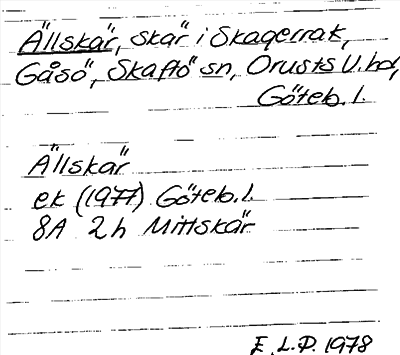 Ällskär, skär i Skagerrak,
Gåsö, Skaftö sn, Orusts V. hd,
Göteb. l.
Ällskär
ek (1977) Göteb. l.
8A 2h Mittskär
E. L. P. 1978